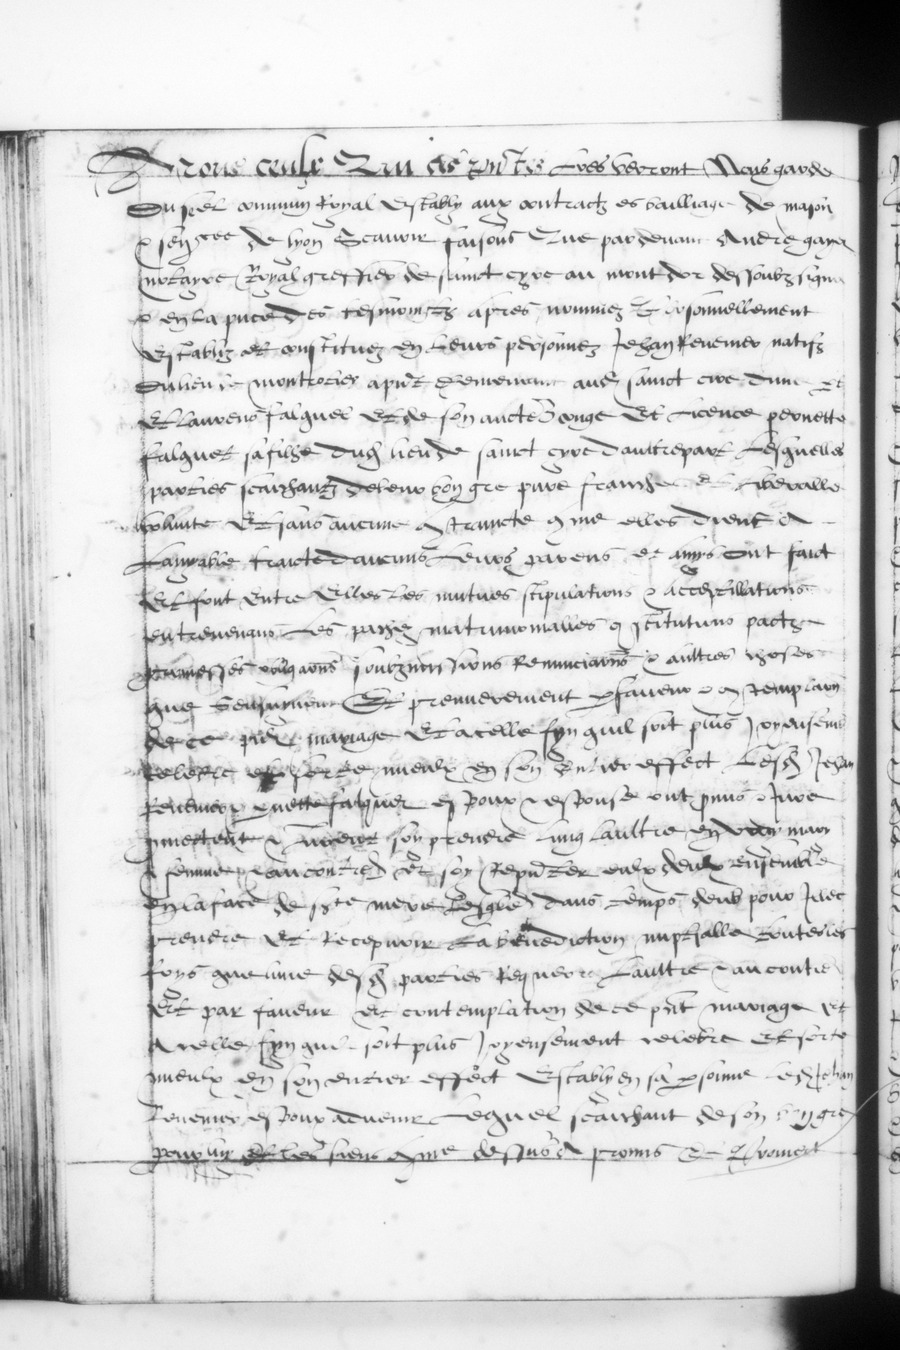 A tous ceulx Qui ces pntes Lres verront Nous garde
Du seel commun Royal Estably aux contractz es bailliage de mascon
& senesce de lyon Scavoir faisons Que par devant Andre
notayre Royal greffier de sainct cyre au mont dor dessoubz signe
& en la pnce des tesmoingtz apres nommez Et personnellement
Establiz et constituez en Leurs personnes Jehan Revemer natifz
Du lieu de apnt demeurant aud sainct cire dune
Et Laurens falguet Et de son aucte conge Et Licence pernette
falguet sa filhe dud lieu de sainct cyre daultre part Lesquelles
parties scaichantz de leur bon gre pure franche et Liberalle
volunte Et sans aucune contraincte comme elles dient A
Lamyable traicte daucuns Leurs parens et amys Ont faict
Et font Entre Elles Les mutues stipulations & acceptillations
entrevenans Les pactz matrimonialles constitutions pactz
promesses obligaons soubzmissions Renunciaons & aultres choses
que Sensuivent Et premierement p faveur & contemplaon
de ce pnt mariage Et a celle fyn quil soit plus Joyeusemt
celebre et sorte mieulx en son entier effect Lesd Jehan
Revemer & pnette falguet espoux & espouse ont pmis & Jure
pmectent & Jurent soy prendre lung laultre en vray mary
& femme & au contre Et soy Representer eulx deulx ensemble
en la face de scte mere Esglise dans temps deub pour Illec
prendre Et Recepvoir La benediction nuptialle toutes les
foys que lune desd parties Requerra Laultre & au contre
Et par faveur et contemplation de ce pnt mariage et
A celle fyn quil soit plus Joyeusement celebre Et sorte
mieulx en son entier effect Estably en sa psonne Led Jehan
Revemer espoux advenir Lequel scaichant de son bon gre
pour luy Et les siens comme dessus A promis Et promect